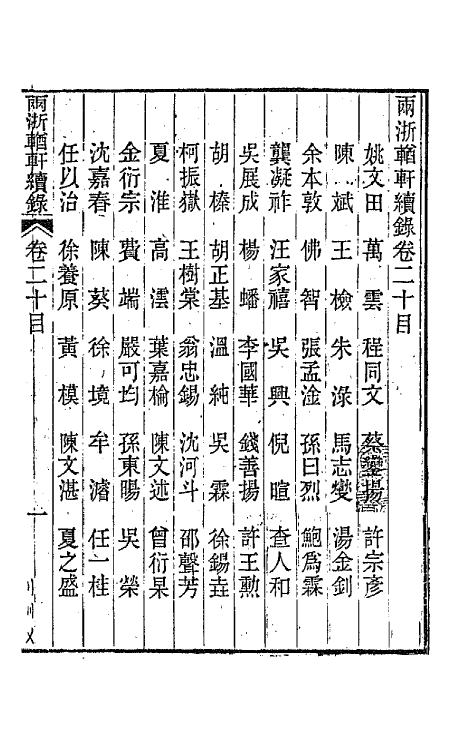 兩浙輶軒續錄卷二十目
姚文田 萬雲 程同文 蔡鑾揚 許宗彥
陳斌 王檢 朱淥 馬志燮 湯金釗
余本敦 佛智 張孟淦 孫曰烈 鮑爲霖
龔凝祚 汪家禧 吳興 倪暄 查人和
吳展成 楊蟠 李國華 錢善揚 許王勲
胡榛 胡正基 溫純 吳霖 徐錫垚
柯振嶽 王樹棠 翁忠錫 沈河斗 邵聲芳
夏淮 高澐 葉嘉棆 陳文述 曾衍杲
金衍宗 費端 嚴可均 孫東暘 吳榮
沈嘉春 陳葵 徐境 牟濬 任一桂
任以治 徐養原 黃模 陳文湛 夏之盛
兩浙輶軒續錄 卷二十目 一